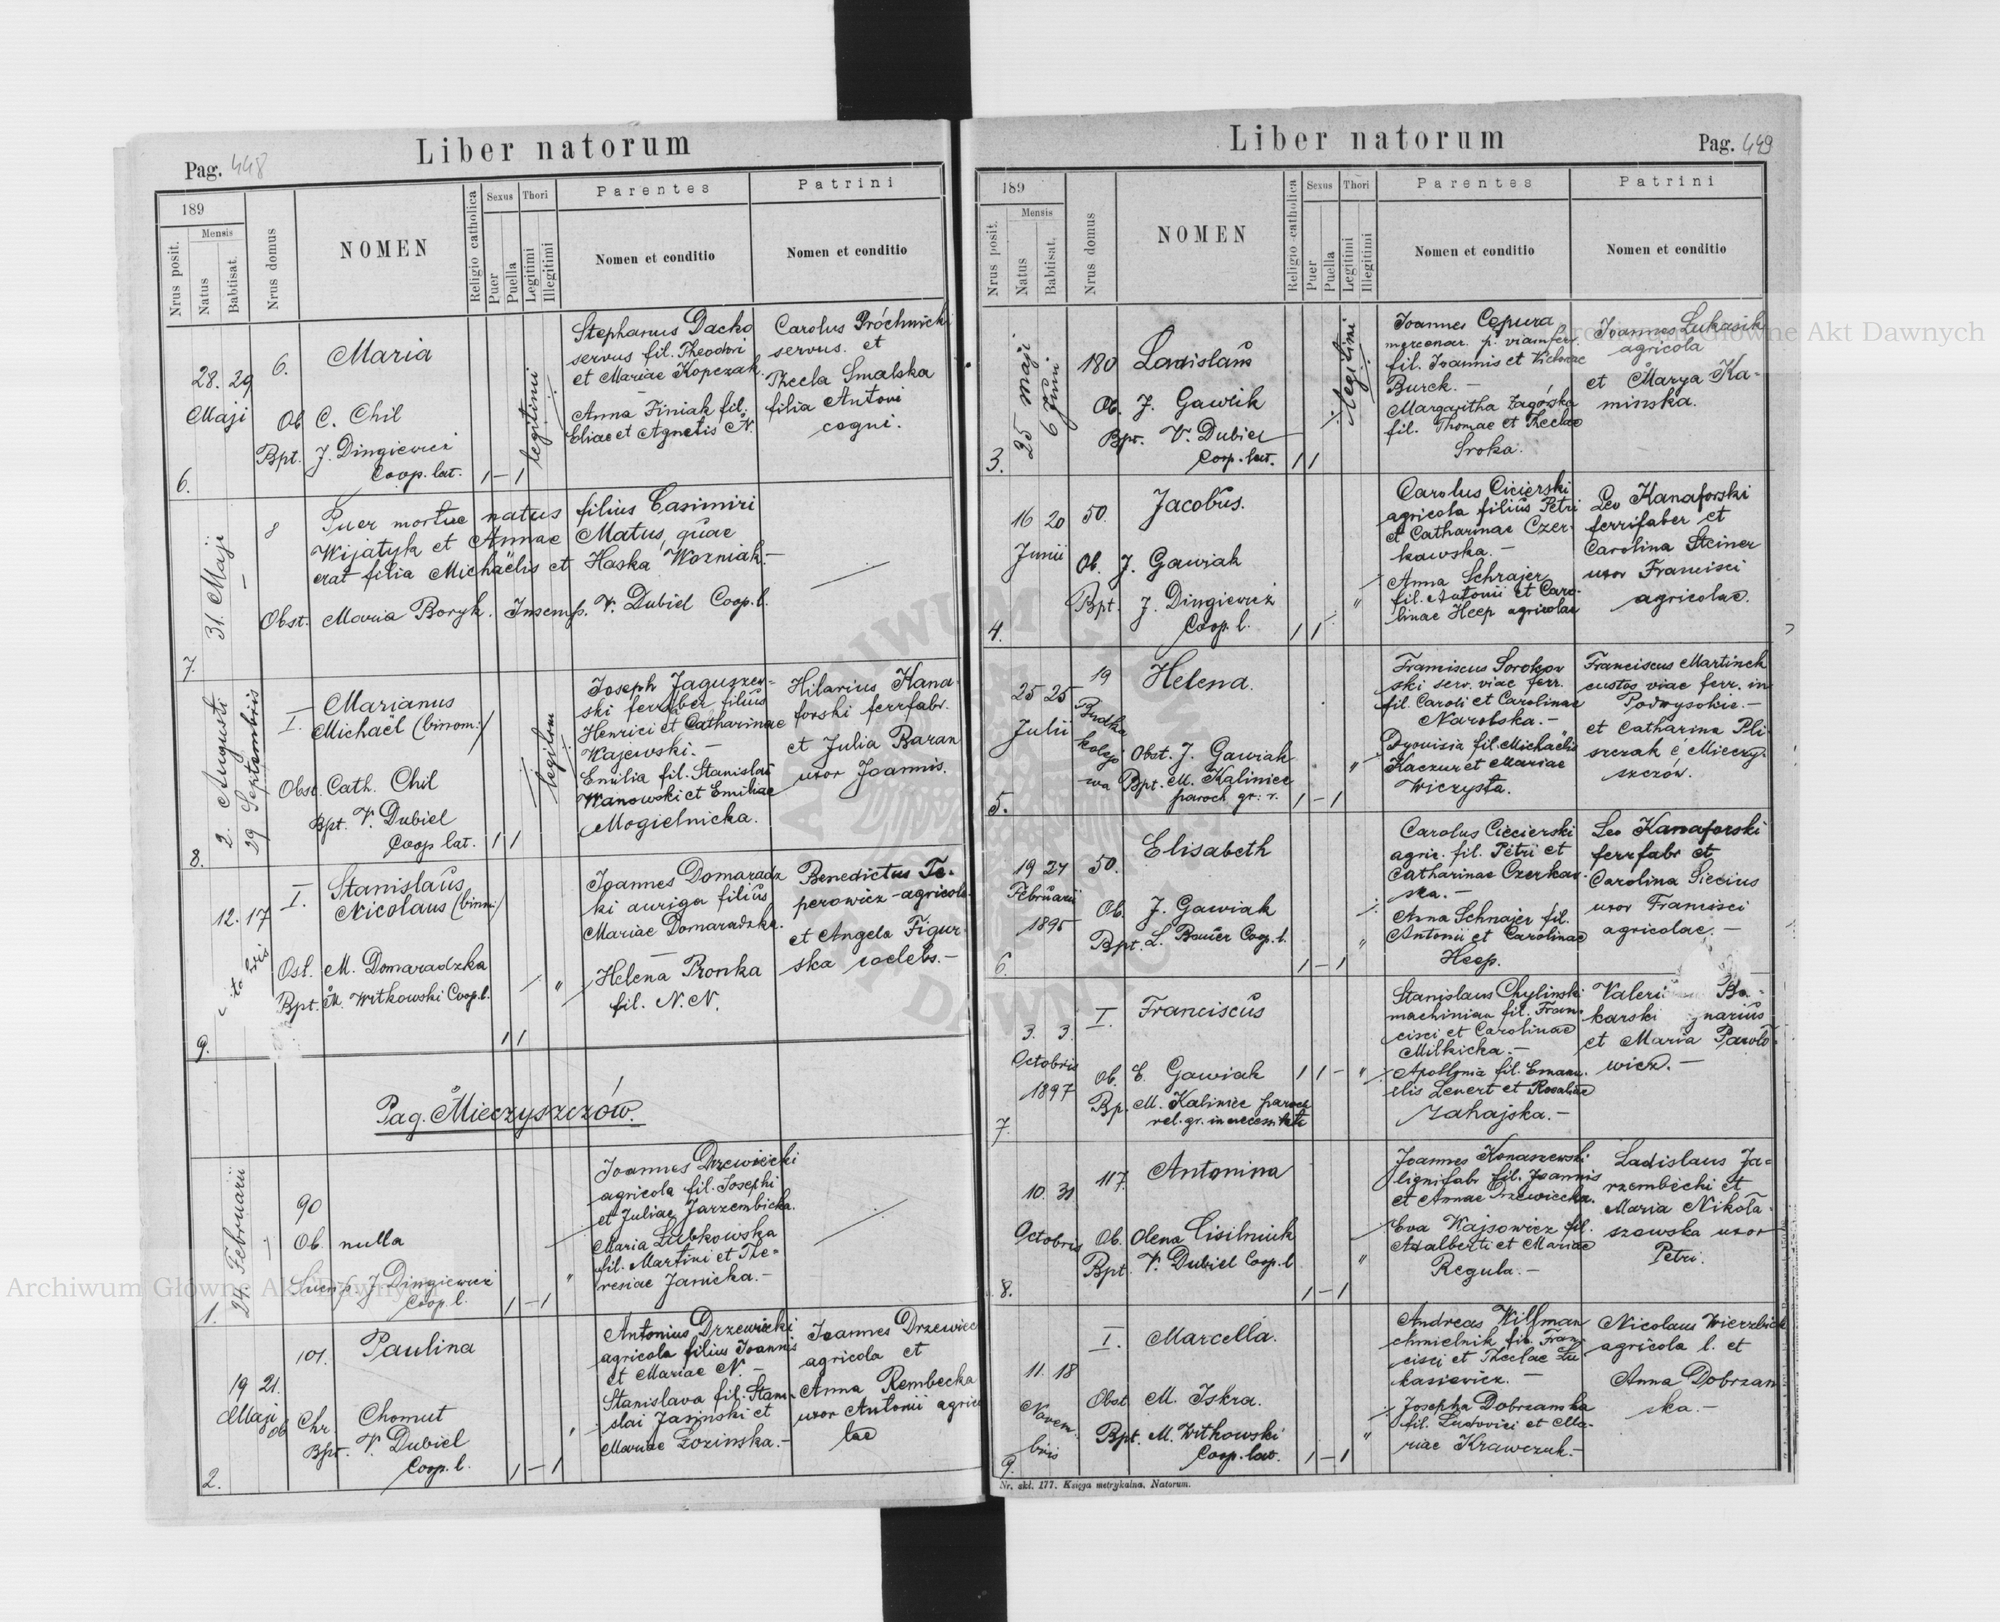 Liber natorum
Pag. 448
189
Mensis
Nrus posit.
Natus
Babtisat.
Nrus domus
NOMEN
Religio catholica
Sexus
Puer
Puella
Thori
Legitimi
Illegitimi
Parentes
Nomen et conditio
Patrini
Nomen et conditio
6.
28. 29
Maji
6.
Maria
Ob C. Chil
Bpt. J. Dingiewicz
Coop. lat.
1 - 1
legitimi
Stephanus Dacko
servus fil. Theodori
et Mariae Kopczak.
Anna Finiak fil.
Eliae et Agnetis N.
Carolus Próchnicki
servus. et
Thecla Smalska
filia Antoni
cogni.
7.
31. Maji
8
Puer mortue natus filius Casimiri
Wijatyk et Annae Matus, quae
erat filia Michaëlis et Haska Wozniak.
Obst. Maria Boryk. Insemp. V. Dubiel Coop. l.
8.
2. Augusti
29 Septembris
I.
Marianus
Michaël (binom:)
Obst. Cath. Chil
Bpt. V. Dubiel
Coop lat.
1 1
legitim
Joseph Jaguszew-
ski ferrfaber filius
Henrici et Catharinae
Wajewski. -
Emilia fil. Stanislai
Wanowski et Emiliae
Mogielnicka.
Hilarius Kana-
forski ferrfabr.
et Julia Baran
uxor Joannis.
9.
12. 17
I.
Stanislaus
Nicolaus (binm:)
Ost. M. Domaradzka
Bpt. M. Witkowski Coop. l.
1 1
Joannes Domaradz
ki auriga filius
Mariae Domaradzka.
Helena Pronka
fil. N. N.
Benedictus Te-
perowicz - agricola
et Angela Figur-
ska caelebs. -
Pag. Mieczyszczów.
1.
24. Februarii
90
Ob. nulla
J. Dingiewicz
Coop. l.
1 - 1
"
Joannes Drzewiecki
agricola fil. Josephi
et Juliae Jarzembicka.
Maria Lubkowska
fil. Martini et The=
resiae Janicka. -
2.
19 21.
Maji
101.
Paulina
Ob Chr. Chomut
Bpt. V. Dubiel
Coop. l.
1 - 1
Antonius Drzewiecki
agricola filius Joannis
et Mariae N. -
Stanislava fil. Stani-
slai Jasinski et
Mariae Lozinska. -
Joannes Drzewiec
agricola et
Anna Rembecka
uxor Antonii agrico
lae
Liber natorum
Pag. 449
189
Mensis
Nrus posit.
Natus
Babtisat.
Nrus domus
NOMEN
Religio catholica
Sexus
Puer
Puella
Thori
Legitimi
Illegitimi
Parentes
Nomen et conditio
Patrini
Nomen et conditio
3.
25 Maji
6 Juni
180
Ladislaus
Ob. J. Gawlik
Bpt. V. Dubiel
Coop. lat.
1 1
legitimi
Joannes Cepura
mercenar. p. viam fer.
fil. Joannis et Victoriae
Burck. -
Margaritha Zagórska
fil. Thomae et Theclae
Sroka.
Joannes Lukasik
agricola
et Marya Ka-
minska.
4.
16 20
Junii
50.
Jacobus.
Ob. J. Gawiak
Bpt. J. Dingiewicz
Coop. l.
1 1
"
Carolus Cicierski
agricola filius Petri
et Catharinae Czer-
kawska. -
Anna Schrajer
fil. Antonii et Caro-
linae Heep agricolae
Leo Kanaforski
ferrifaber et
Carolina Steiner
uxor Francisci
agricolae.
5.
25 25
Julii
19
Budka
kolejo
wa
Helena.
Obst. J. Gawiak
Bpt. M. Kaliniec
paroch. gr. r.
1 - 1
"
Franciscus Sorokow
ski serv. viae ferr.
fil. Caroli et Carolinae
Narolska. -
Dyonisia fil. Michaëlis
Kaczur et Mariae
Wiczysta.
Franciscus Martinek
custos viae ferr. in
Podwysokie. -
et Catharina Pli
szczak é Mieczy-
szczów.
6.
19 27
Februarii
1895
50.
Elisabeth
Ob. J. Gawiak
Bpt. L. Bauer Coop. l.
1 - 1
"
Carolus Ciecierski
agric. fil. Petri et
Catharinae Czerkaw-
ska. -
Anna Schnajer fil.
Antonii et Carolinae
Heep.
Leo Kanaforski
ferrfabr et
Carolina Siecius
uxor Francisci
agricolae. -
7.
3. 3.
Octobris
1897
I.
Franciscus
Ob. E. Gawiak
Bp. M. Kaliniec paroch
rel. gr. in necessitate
1 1 -
"
Stanislaus Chylinski
machinian fil. Fran-
cisci et Carolinae
Milkicka. -
Apollonia fil. Emanu-
elis Lenert et Rosaliae
Zahajska. -
Valeri Bo-
karski gnarius
et Maria Pawlo-
wicz. -
8.
10. 31
Octobris
117
Antonina
Ob. Olena Cisilniuk
Bpt. V. Dubiel Coop. l
1 - 1
"
Joannes Konaszewski
lignifabr fil. Joannis
et Annae Drzewiecka.
Eva Wajsowicz fil.
Adalberti et Mariae
Regula. -
Ladislaus Ja=
rzembicki et
Maria Nikola-
szowska uxor
Petri.
9.
11. 18
Novem-
bris
I.
Marcella.
Obst. M. Iskra.
Bpt. M. Witkowski
Coop. lat.
1 - 1
"
Andreas Wilfman
chmielnik fil. Fran-
cisci et Theclae Lu-
kasiewicz. -
Josepha Dobrzanska
fil. Ludovici et Ma-
riae Krawczuk. -
Nicolaus Wierzbick
agricola l. et
Anna Dobrzan
ska. -
Nr. skł. 177. Księga metrykalna, Natorum.
Archiwum Główne Akt Dawnych
Archiwum Główne Akt Dawnych
ARCHIWUM GŁÓWNE AKT DAWNYCH